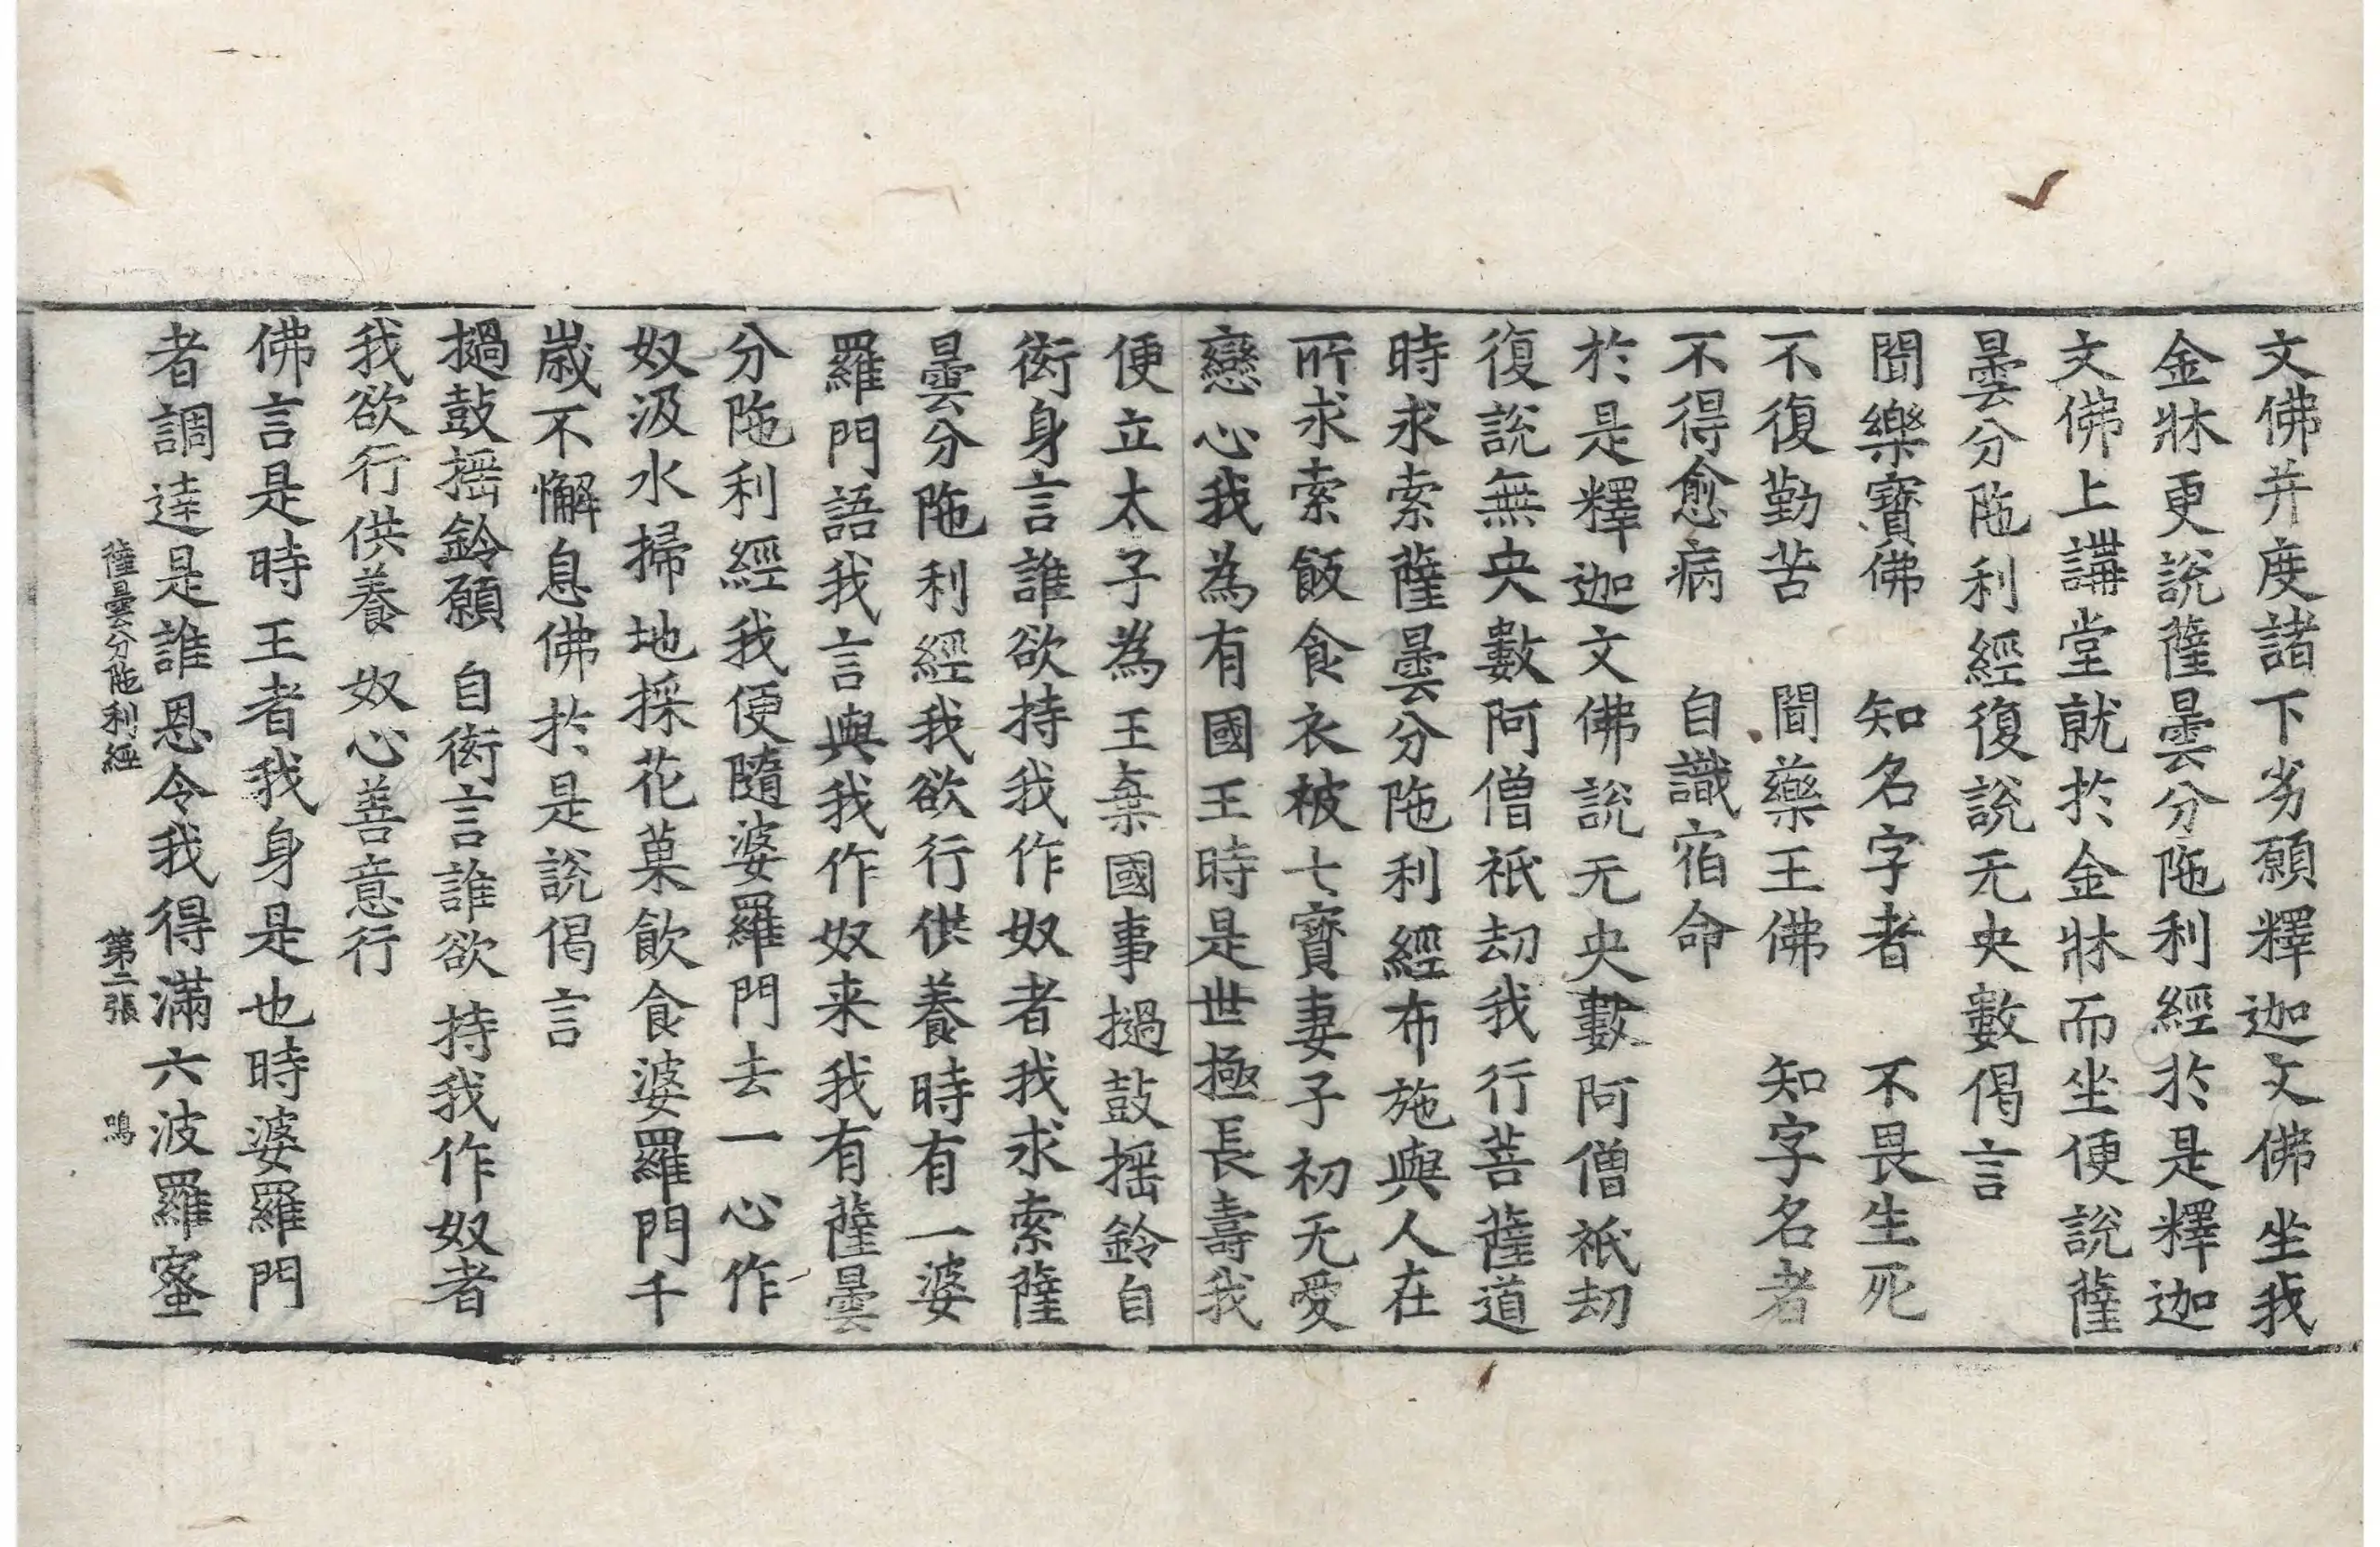 文佛并度諸下劣願釋迦文佛坐我
金牀更說薩曇分陁利經於是釋迦
文佛上講堂就於金牀而坐便說薩
曇分陁利經復說无央數偈言
聞樂寶佛　知名字者　不畏生死
不復勤苦　聞藥王佛　知字名者
不得愈病　自識宿命
於是釋迦文佛說无央數阿僧祇劫
復說無央數阿僧祇劫我行菩薩道
時求索薩曇分陁利經布施與人在
所求索飯食衣被七寶妻子初无愛
戀心我為有國王時是世極長壽我
便立太子為王棄國事撾鼓搖鈴自
衒身言誰欲持我作奴者我求索薩
曇分陁利經我欲行供養時有一婆
羅門語我言與我作奴来我有薩曇
分陁利經我便隨婆羅門去一心作
奴汲水掃地採花菓飲食婆羅門千
歲不懈息佛於是說偈言
撾鼓搖鈴願　自衒言誰欲　持我作奴者
我欲行供養　奴心善意行
佛言是時王者我身是也時婆羅門
者調達是誰恩令我得滿六波羅蜜
薩曇分陁利經　第二張　鳴